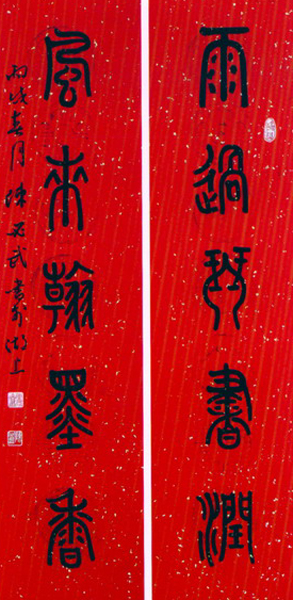 雨過琴書潤
風來翰墨香
丙戌春月陳
書於湖上